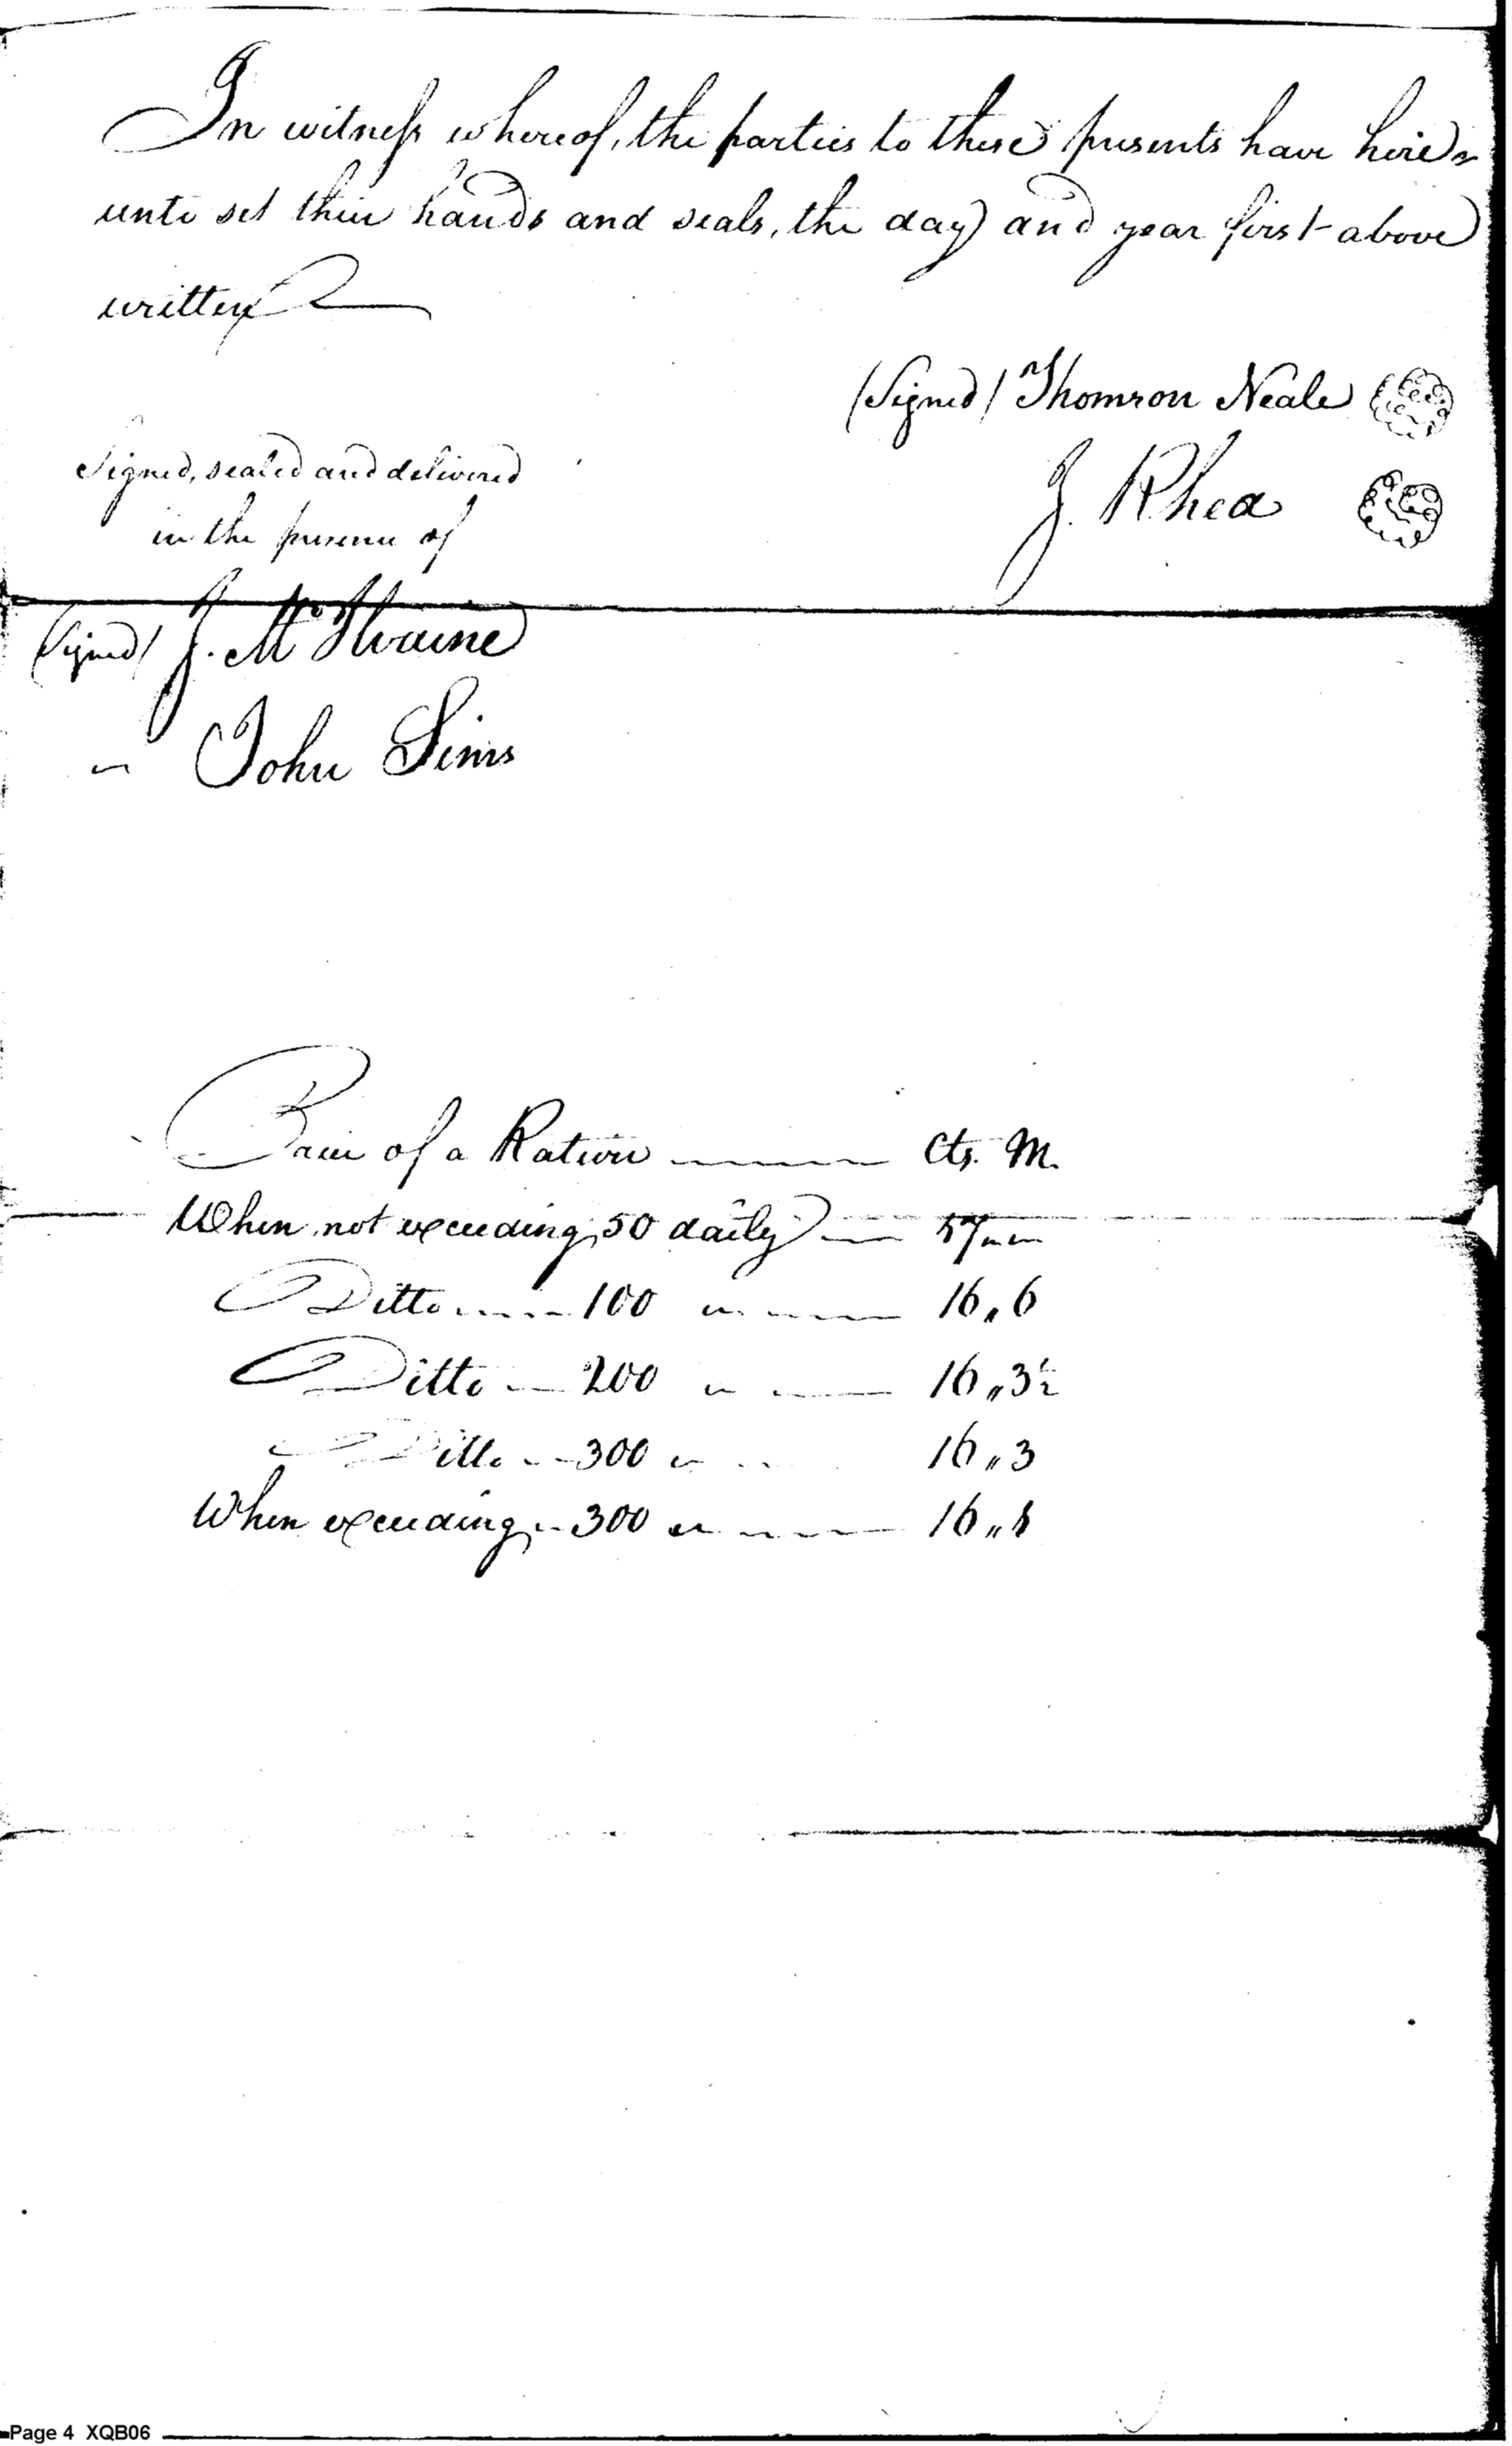 In witness whereof, the parties to these presents have here=
unto set their hands and seals, the day and year first above
written
(Signed) Thomson Neale
J. Rhea
Signed, sealed and delivered
in the presence of
(Signed) J. McIlvaine
" John Sims
Price of a Ration Cts. M.
When not exceeding 50 daily 17 "
Ditto 100 " 16 „ 6
Ditto 200 " 16 „ 3½
Ditto 300 " 16 „ 3
When exceeding 300 " 16 „
Page 4 XQB06